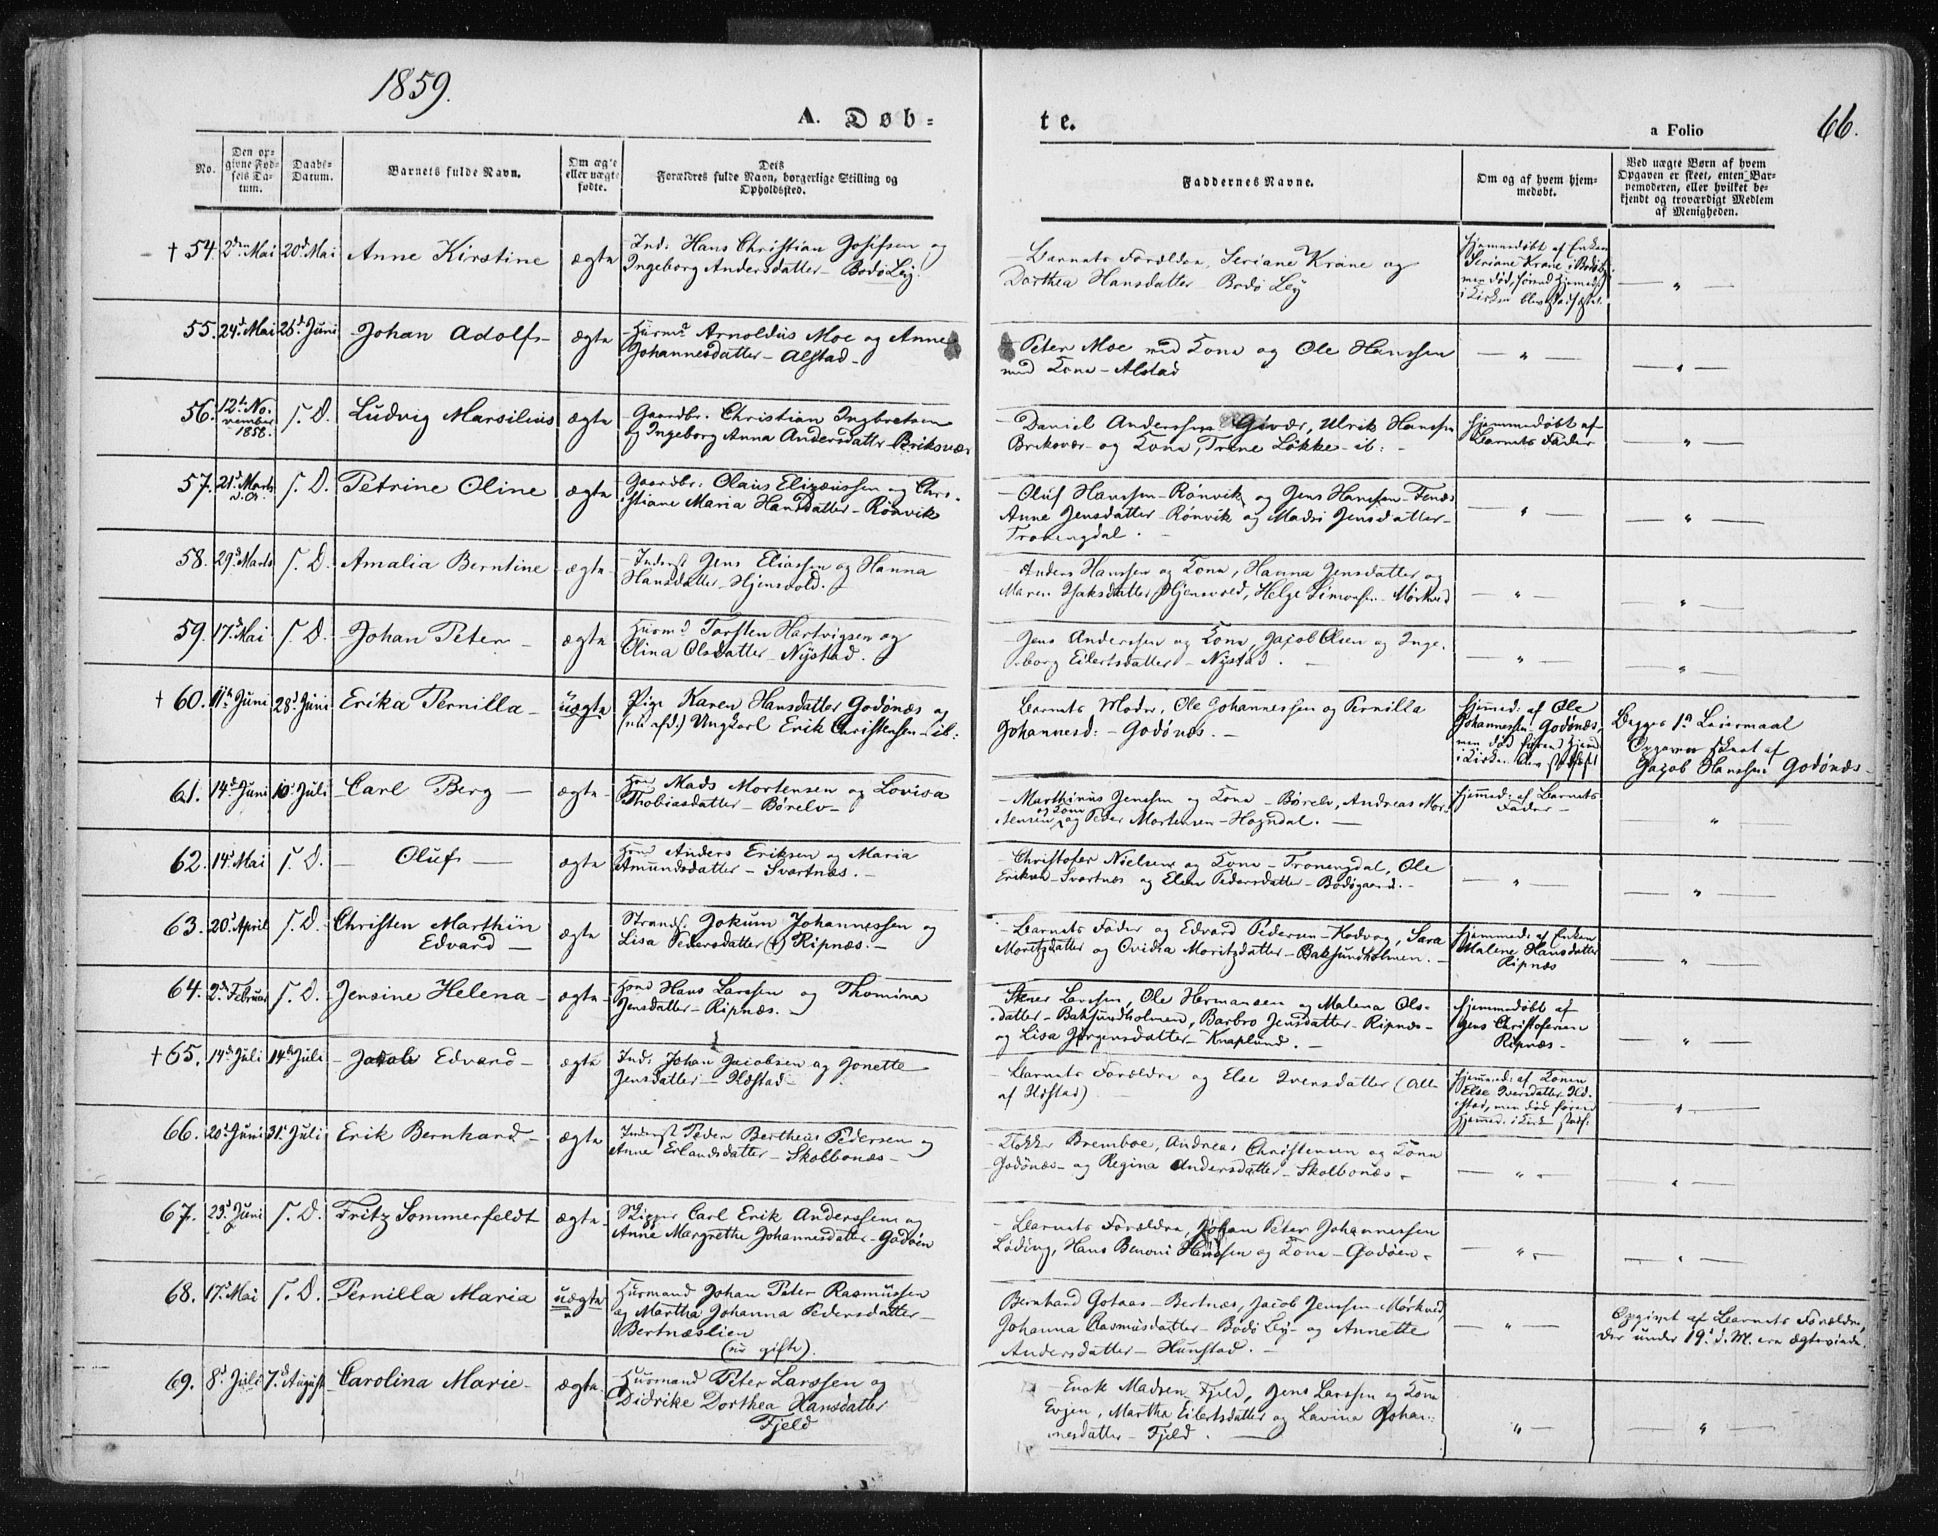 1859.
A. Døb-
te.
a Folio
66.
No.
Den op-
givne Fød-
sels Da-
tum.
Daabs-
Datum.
Barnets fulde Navn.
Om ægte
eller uægte
fødte.
Dets
Forældres fulde Navn, borgerlige Stilling og
Opholdssted.
Faddernes Navne.
Om og af hvem hjem-
medøbt.
Ved uægte Børn af hvem
Opgaven er skeet, enten Bar-
nemoderen, eller hvilket be-
kjendt og troværdigt Medlem
af Menigheden.
† 54. 2den Mai 20d Mai Anne Kirstine ægte
Ind: Hans Christian Josefsen og
Ingeborg Andersdatter - Bodø Lej.
Barnets Forældre, Seriane Krane og
Dorthea Hansdatter - Bodø Lej
Hjemmedøbt af Enken
Seriane Krane i Bodø,
men død, førend Hjemmed.
i Kirken blev stadfæstet.
— " —
55. 24d Mai 26d Juni Johan Adolf - ægte
Huusmd Arnoldus Moe og Anne
Johannesdatter - Alstad -
Peter Moe med Kone og Ole Hanssen
med Kone - Alstad
— " — — " —
56. 12te No-
vember
1858. s. D. Ludvig Marsilius ægte
Gaardbr. Christian Ingbretsen
og Ingeborg Anna Andersdatter - Briksvær
Daniel Anderssen Givær, Ulrik Hanssen
Briksvær - og Kone, Trine Løkke - ib: -
Hjemmedøbt af
Barnets Fader
— " —
57. 21d Marts
d. A. s. D. Petrine Oline ægte
Gaardbr: Olaus Elizæussen og Chri-
stiane Maria Hansdatter - Rønvik
Oluf Hanssen - Rønvik og Jens Hanssen - Fenæs
Anne Jensdatter - Rønvik og Madsi Jensdatter -
Tronengdal.
— " — — " —
58. 29d Marts s. D. Amalia Berntine ægte
Inderst Jens Eliassen og Hanna
Hansdatter - Hjensvold.
Anders Hanssen og Kone, Hanna Jensdatter og
Maren Isaksdatter Hjensvold, Helge Simonsen - Mørkved
— " — — " —
59. 17d Mai s. D. Johan Peter - ægte
Huusmd Torsten Hartvigsen og
Olina Olsdatter - Nystad.
Jens Anderssen og Kone, Jacob Olsen og Inge-
borg Eilertsdatter - Nystad.
— " — — " —
† 60. 11te Juni 28d Juni Erika Pernilla - uægte
Pige Karen Hansdatter Godønæs og
Ungkarl Erik Christensen - ib:
Barnets Moder, Ole Johannessen og Pernilla
Johannesd: - Godønæs. -
Hjemmed: af Ole
Johannessen - Godønæs,
men død førend Hjemd.
i Kirken blev stadfæstet
Begges 1ste Leiermaal
Opgaven skeet af
Jacob Hanssen Godønæs -
61. 14d Juni 10d Juli Carl Berg - ægte
Hmd Mads Mortensen og Lovisa
Thobiasdatter - Børelv -
Marthinus Jenssen og Kone - Børelv, Andreas Mor-
tensen og Kone og Peder Mortensen - Hogndal. -
Hjemmed: af Barnets
Fader -
"
62. 14d Mai s. D. - Oluf - ægte
Hmd Anders Eriksen og Maria
Amundsdatter - Svartnæs. -
Christofer Nielsen og Kone - Tronengdal, Ole
Eriksen - Svartnæs og Elen Pedersdatter - Bodøgaard. -
— " — "
63. 20d April s. D. Christen Marthin
Edvard - ægte
Strands. Jokum Johannessen og
Lisa Pedersdatter (†) Ripnæs. -
Barnets Fader og Edvard Pedersen - Kodvog, Sara
Moritzdatter og Ovidia Moritzdatter - Baksundholmen. -
Hjemmed: af Enken
Malene Hansdatter
Ripnæs
— " —
64. 2den Februar s. D. Jensine Helena - ægte
Hmd Hans Larssen og Thomina
Jensdatter - Ripnæs. -
Stener Larssen, Ole Hermansen og Malena Ols-
datter - Baksundholmen, Barbro Jensdatter - Ripnæs -
og Lisa Jørgensdatter - Knaplund. -
Hjemmedøbt af
Jens Christofersen
Ripnæs -
— " —
† 65. 14d Juli 14d Juli - Jakob Edvard - ægte
Ind: Johan Jacobsen og Jonette
Jensdatter - Ilstad -
Barnets Forældre og Else Iversdatter (Alle
af Ilstad)
Hjemmed: af Konen
Else Iversdatter Il-
stad, men død førend
Hjemmed. i Kirk. stadf:
— " —
66. 20d Juni 31d Juli Erik Bernhard - ægte
Inderst Peder Bertheus Pedersen og
Anne Erlandsdatter - Skolbonæs -
Klokker Bremboe, Andreas Christensen og Kone
Godønæs - og Regina Andersdatter - Skolbonæs -
— " — "
67. 23d Juni s. D. Fritz Sommerfeldt ægte
Skipper Carl Erik Anderssen og
Anne Margrethe Johannesdatter - Godøen
Barnets Forældre, Johan Peter Johannessen
Løding, Hans Benoni Knudsen og Kone - Godøen -
— " — "
68. 17d Mai s. D. Pernilla Maria uægte
Huusmand Johan Peter Rasmussen
og Martha Johanna Pedersdatter -
Bertnæslien
(nu gifte).
Bernhard Gotaas - Bertnæs, Jacob Jenssen - Mørkved,
Johanna Rasmusdatter - Bodø Lej - og Annette
Andersdatter - Hunstad. -
— " —
Opgivet af Barnets Forældre,
der under 19d d. M. ere ægteviede.
69. 8d Juli 7d August Carolina Marie - ægte
Huusmand Peter Larssen og
Didrike Dorthea Hansdatter
Fjeld
Enok Madsen Fjeld, Jens Larssen og Kone
Evjen, Martha Eilertsdatter og Lavina Johan-
nesdatter - Fjeld.
" — — " —